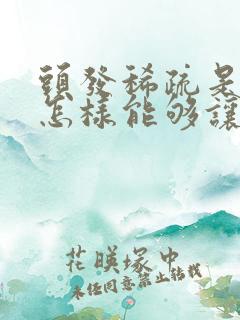 頭發稀疏是
怎樣能够讓
花暎塚中
未任同意禁止转载